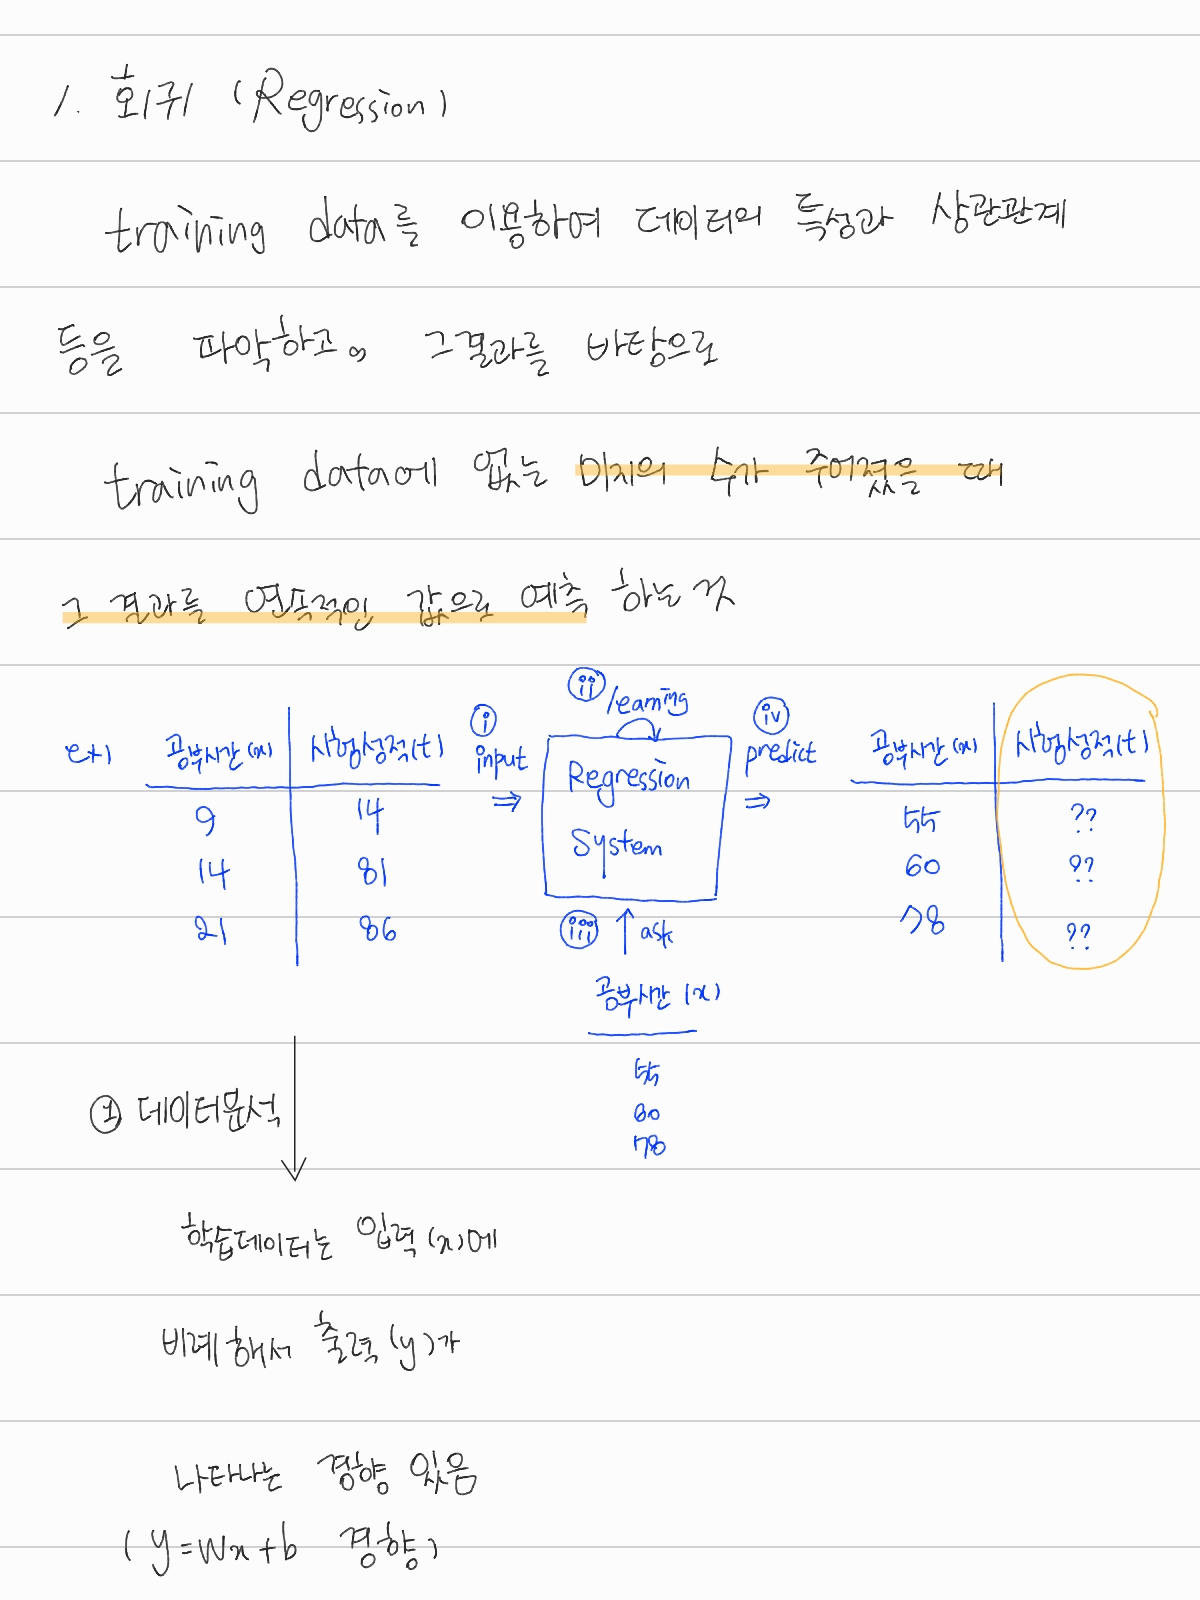 1. 회귀 (Regression)
training data를 이용하여 데이터의 특성과 상관관계
등을 파악하고, 그결과를 바탕으로
training data에 없는 미지의 수가 주어졌을 때
그 결과를 연속적인 값으로 예측 하는 것
ex) 공부시간(x) 시험성적(t)
9 14
14 81
21 86
ⅰ input ⇒
ⅱ learning
Regression
System
ⅲ ↑ ask
공부시간 (x)
55
60
78
ⅳ predict ⇒
공부시간(x) 시험성적(t)
55 ??
60 ??
78 ??
① 데이터분석
학습데이터는 입력(x)에
비례해서 출력(y)가
나타나는 경향 있음
(y=Wx+b 경향)